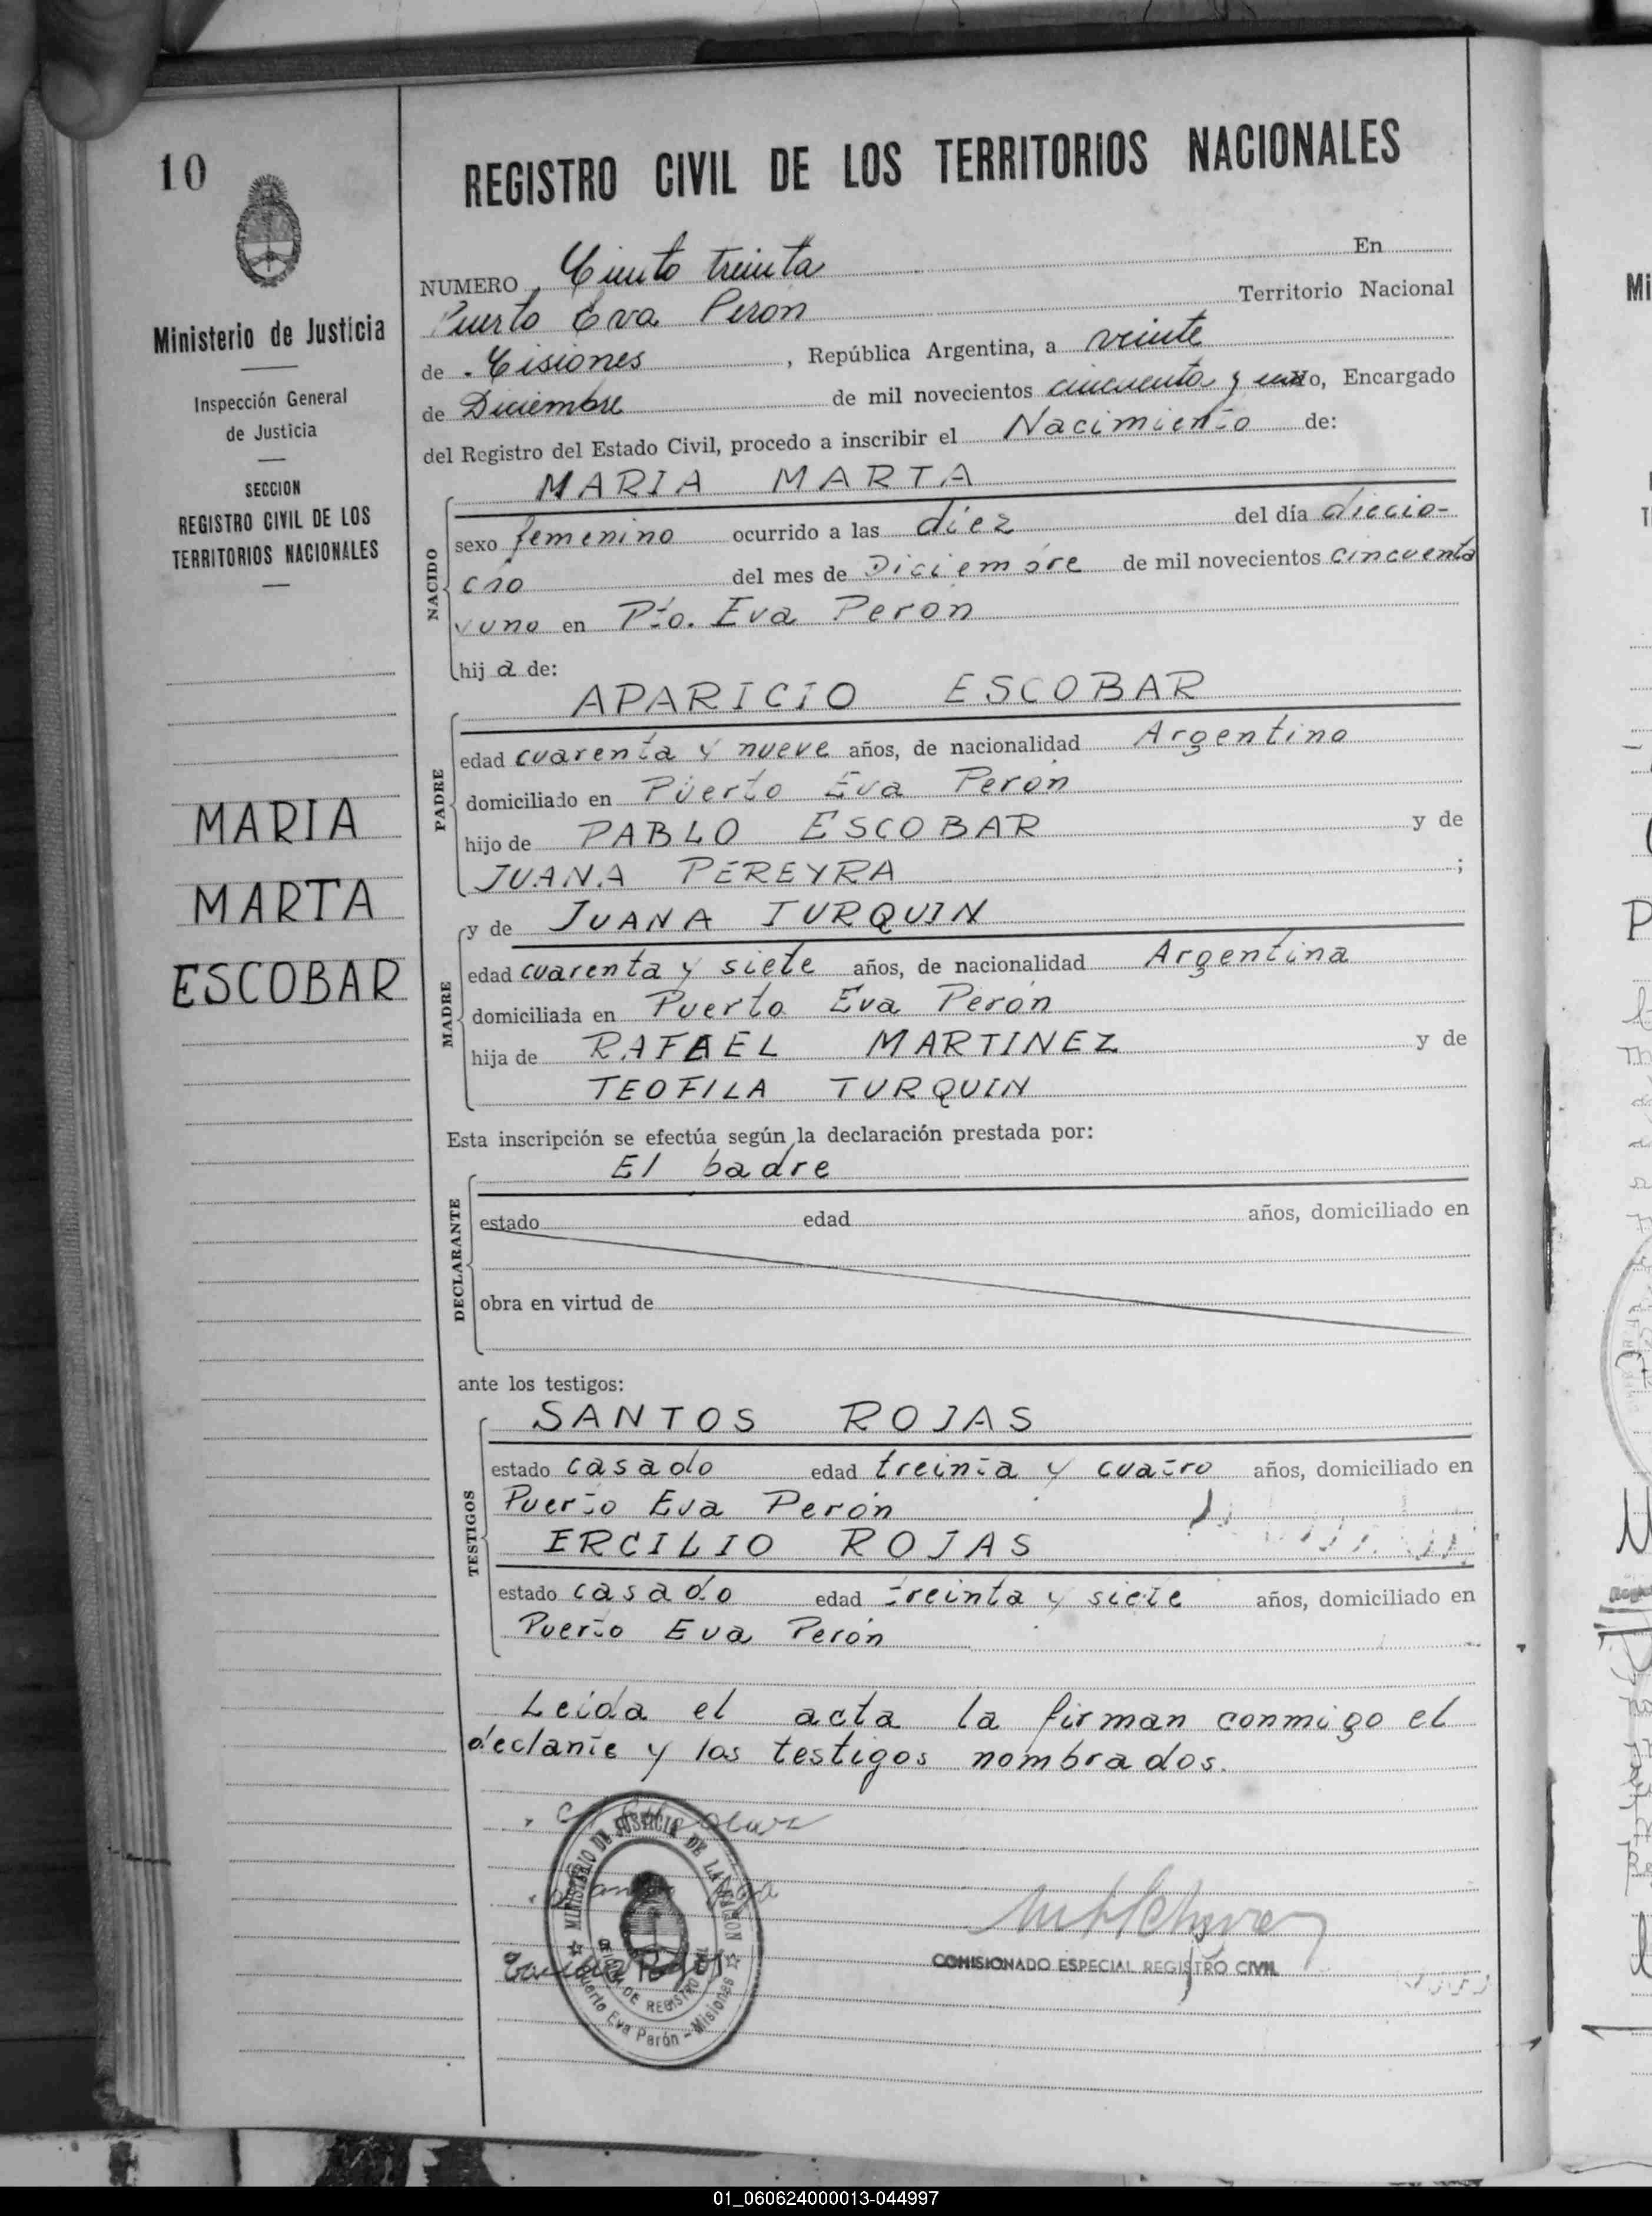 10
Ministerio de Justicia
Inspección General
de Justicia
SECCION
REGISTRO CIVIL DE LOS
TERRITORIOS NACIONALES
MARIA
MARTA
ESCOBAR
REGISTRO CIVIL DE LOS TERRITORIOS NACIONALES
NUMERO Ciento treinta En
Puerto Eva Peron Territorio Nacional
de Misiones, República Argentina, a veinte
de Diciembre de mil novecientos cincuenta y uno, Encargado
del Registro del Estado Civil, procedo a inscribir el Nacimiento de:
MARIA MARTA
NACIDO
sexo femenino ocurrido a las diez del día diecio-
cho del mes de Diciembre de mil novecientos cincuenta
y uno en Pto. Eva Perón
hij a de:
APARICIO ESCOBAR
PADRE
edad cuarenta y nueve años, de nacionalidad Argentino
domiciliado en Puerto Eva Perón
hijo de PABLO ESCOBAR y de
JUANA PEREYRA ;
y de JUANA TURQUIN
MADRE
edad cuarenta y siete años, de nacionalidad Argentina
domiciliada en Puerto Eva Perón
hija de RAFAEL MARTINEZ y de
TEOFILA TURQUIN
Esta inscripción se efectúa según la declaración prestada por:
El padre
DECLARANTE
estado edad años, domiciliado en
obra en virtud de
ante los testigos:
SANTOS ROJAS
TESTIGOS
estado casado edad treinta y cuatro años, domiciliado en
Puerto Eva Perón
ERCILIO ROJAS
estado casado edad treinta y siete años, domiciliado en
Puerto Eva Perón
Leida el acta la firman conmigo el
declante y los testigos nombrados.
MINISTERIO DE JUSTICIA DE LA NACION
DE REGISTRO
Puerto Eva Perón - Misiones
COMISIONADO ESPECIAL REGISTRO CIVIL
01_060624000013-044997